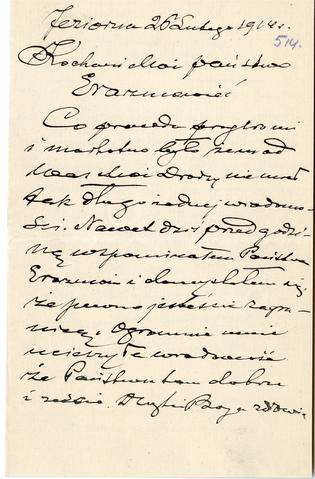 Jeziorna 26 Lutego 1914 r.
514.
Kochani Moi państwo
Erazmowie!
Co prawda przykro mi
i markotno było żem od
Was Moi Drodzy nie miał
tak długo żadnej wiadomo-
ści. Nawet dziś przed godzi-
ną wspominałem Państwa
Erazmów i domyślałem się,
że pewno jesteście zagra-
nicą. Ogromnie mnie
ucieszyła wiadomość
że Państwu tam dobrze
i zdrowi-